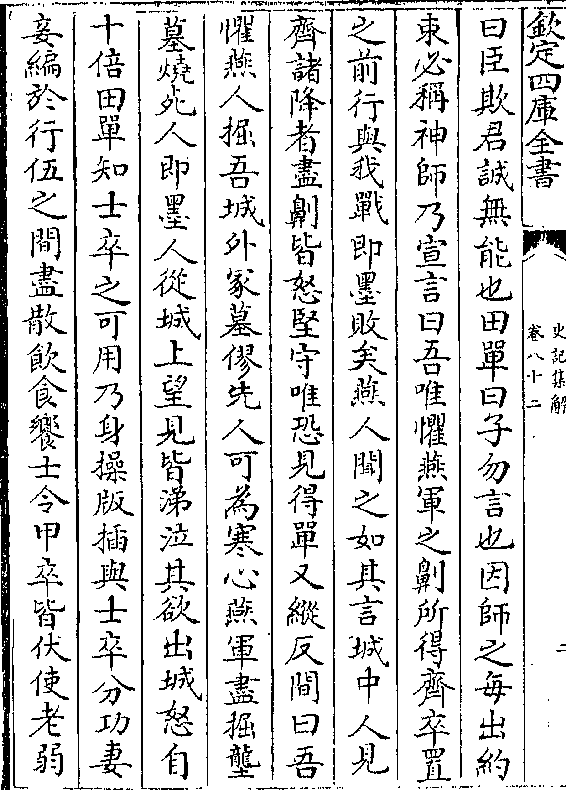 欽定四庫全書
史記集解
卷八十二
二
曰臣欺君誠無能也田單曰子勿言也因師之每出約
束必稱神師乃宣言曰吾唯懼燕軍之劓所得齊卒置
之前行與我戰即墨敗矣燕人聞之如其言城中人見
齊諸降者盡劓皆怒堅守唯恐見得單又縱反間曰吾
懼燕人掘吾城外冢墓僇先人可為寒心燕軍盡掘壟
墓燒死人即墨人從城上望見皆涕泣其欲出城怒自
十倍田單知士卒之可用乃身操版插與士卒分功妻
妾編於行伍之間盡散飲食饗士令甲卒皆伏使老弱